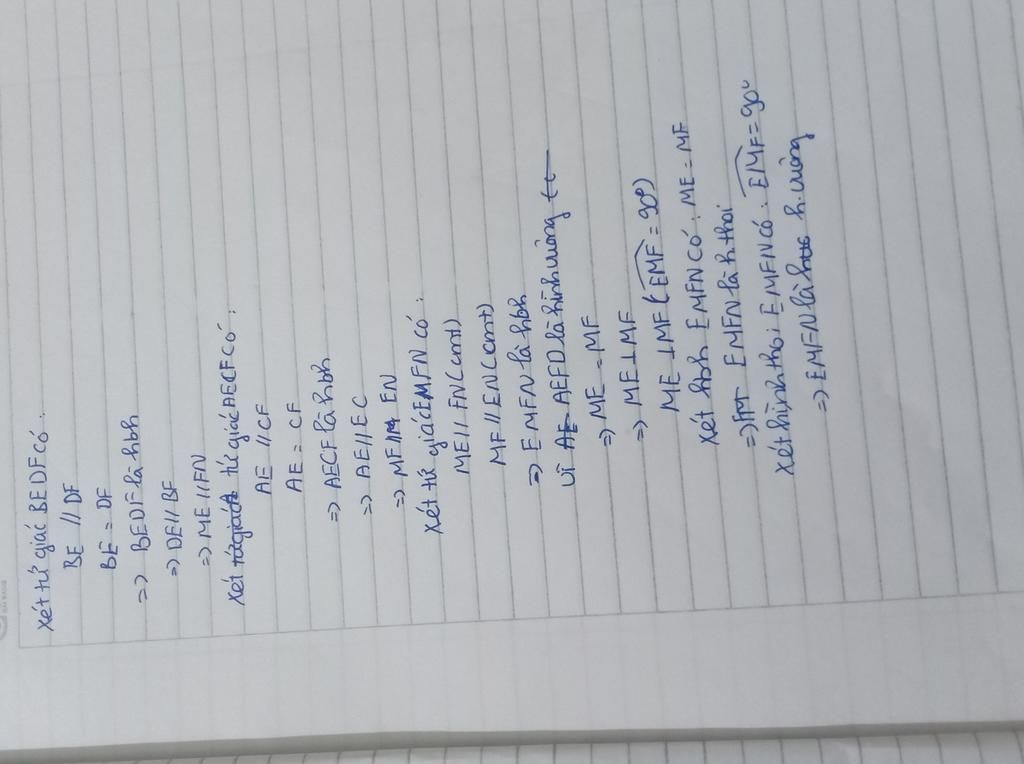 Xét tứ giác BEDF có:
BE // DF
BE = DF
=> BEDF là hbh
=> DE // BF
=> ME // FN
Xét tứ giác AECF có:
AE // CF
AE = CF
=> AECF là hbh
=> AE // EC
=> MF // EN
Xét tứ giác EMFN có:
ME // FN (cmt)
MF // EN (cmt)
=> EMFN là hbh
Vì AEFD là hình vuông
=> ME = MF
=> ME ⊥ MF
ME ⊥ MF (EMF = 90°)
Xét hbh EMFN có: ME = MF
=> EMFN là h thoi
Xét hình thoi EMFN có: EMF = 90°
=> EMFN là h.vuông